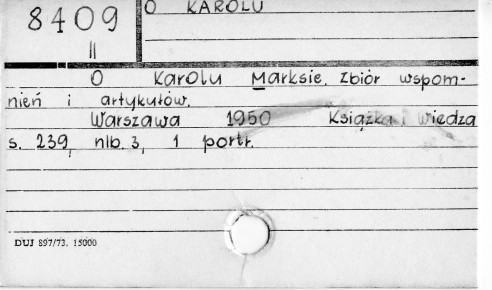 8409
II
O KAROLU
O Karolu Marksie. Zbiór wspom-
nień i artykułów.
Warszawa 1950 Książka i Wiedza
s. 239, nlb. 3, 1 portr.
DUJ 897/73. 15000